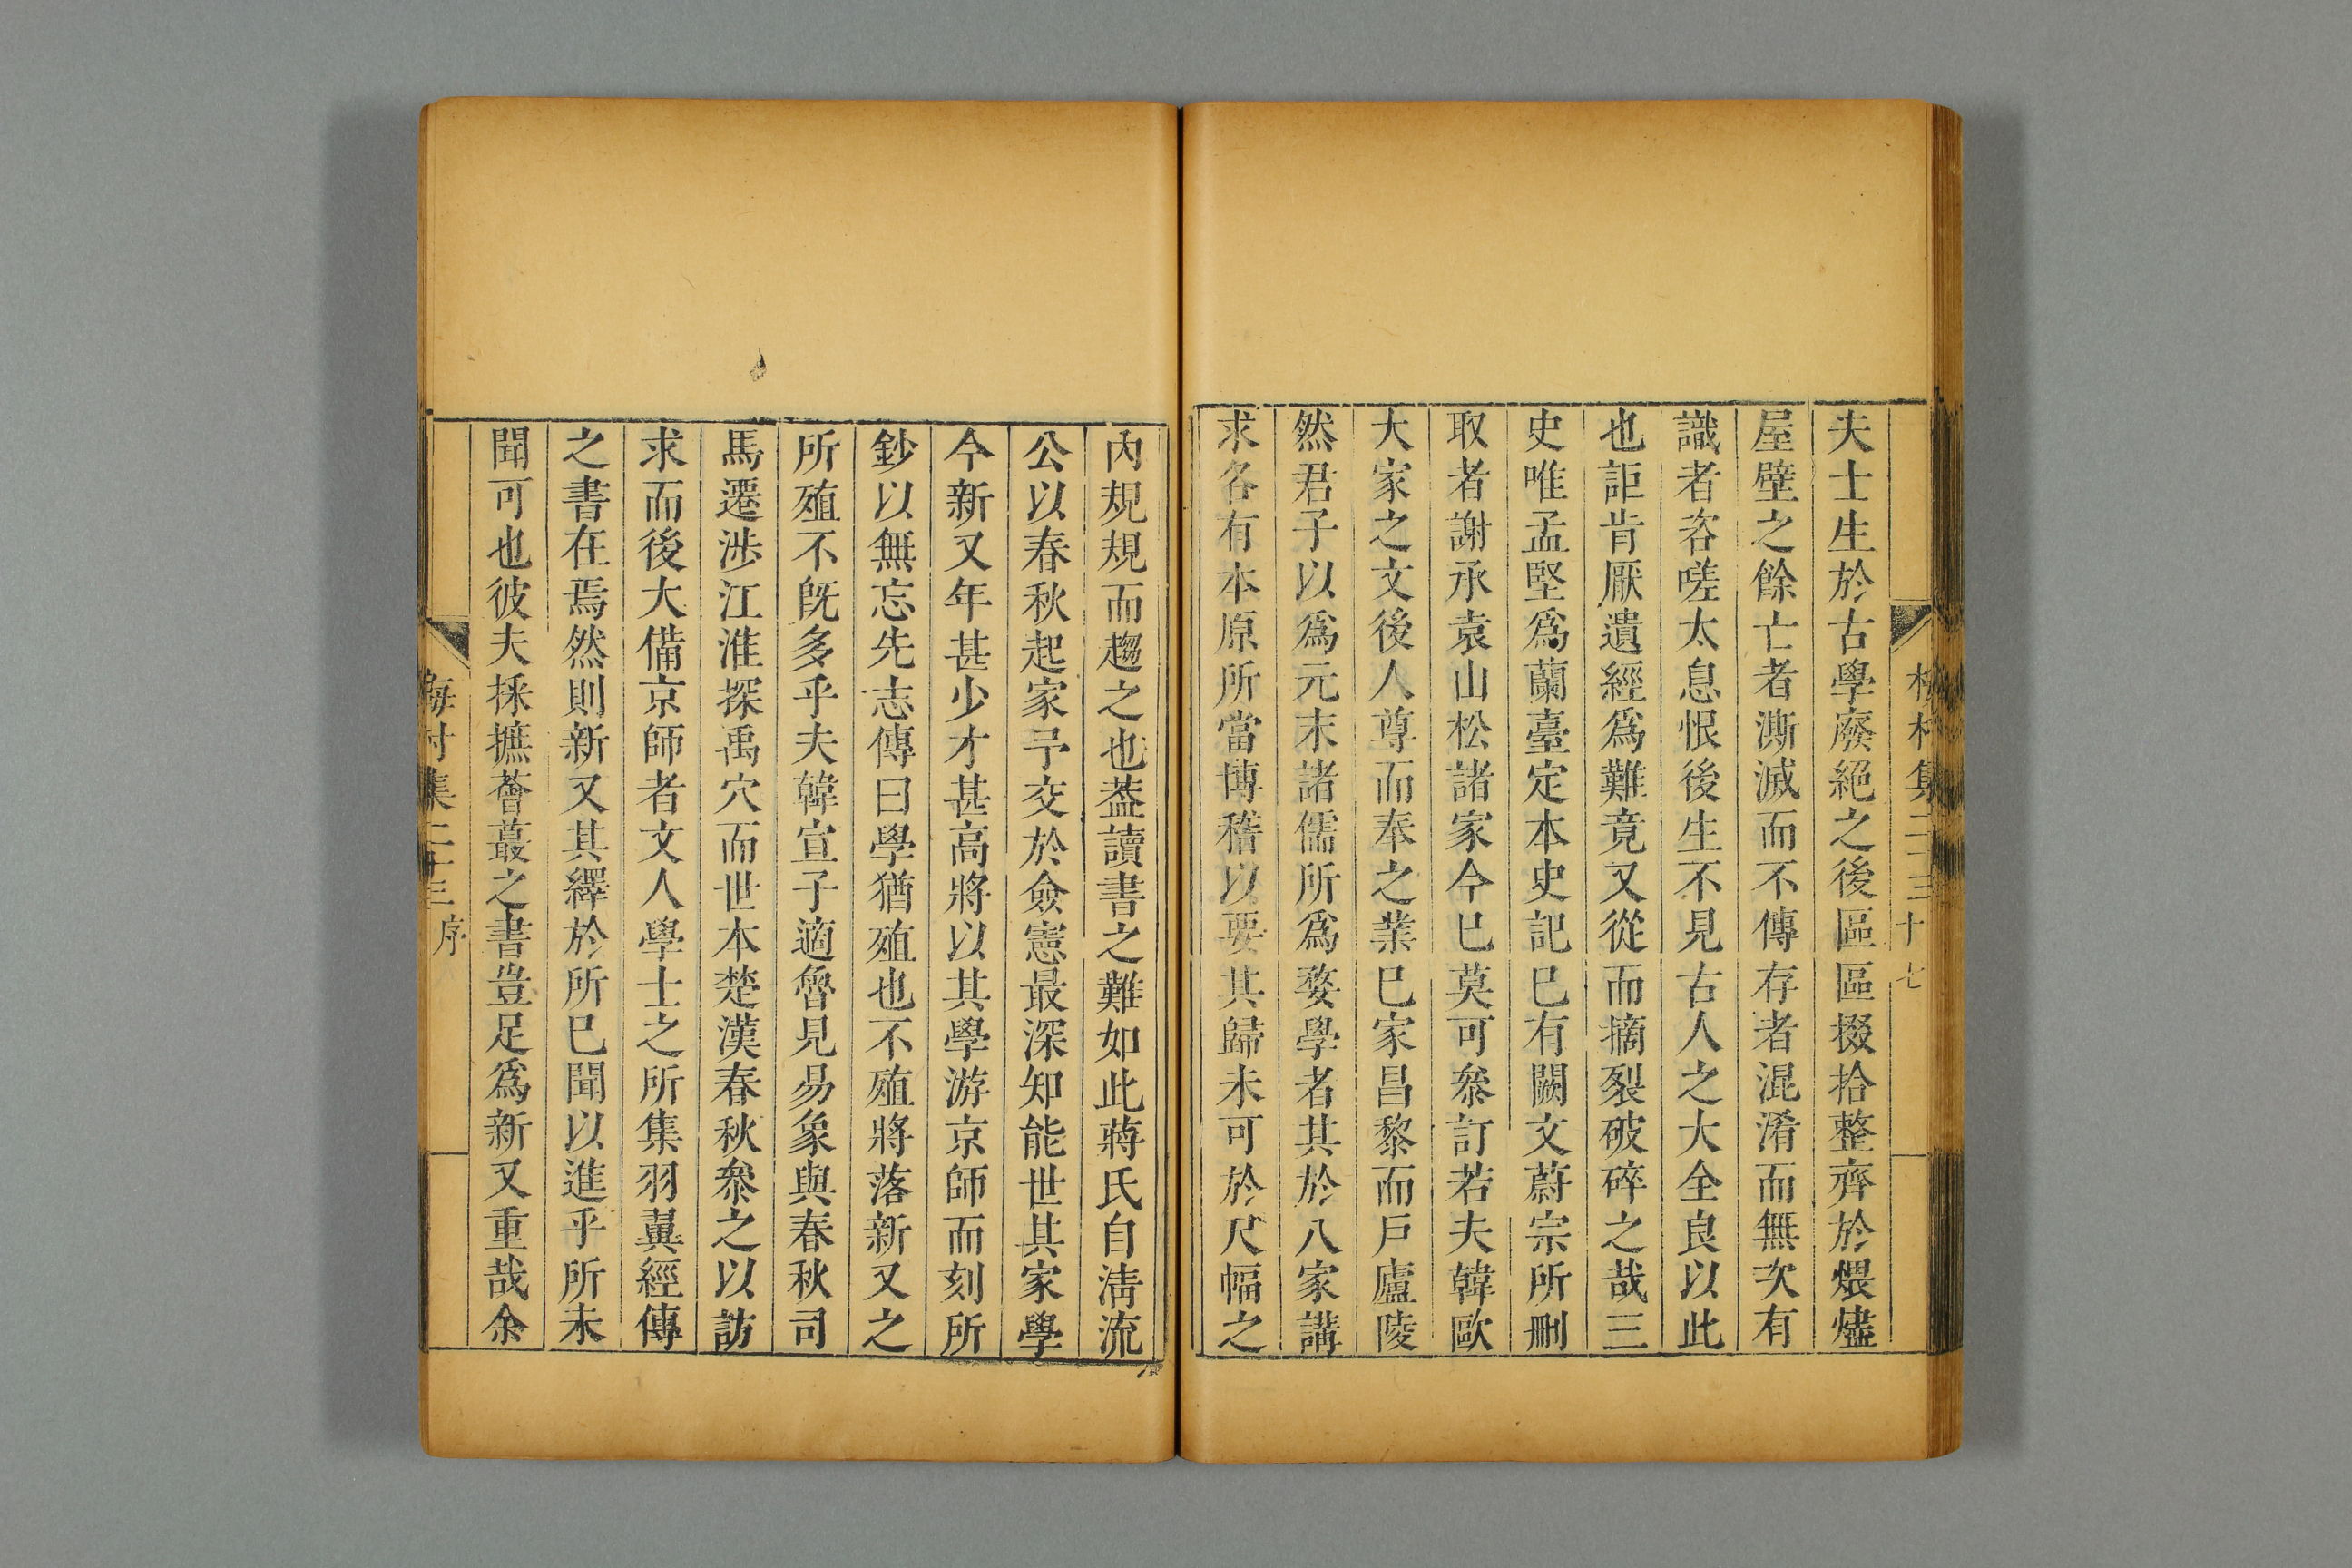 梅村集二十三 十七
夫士生於古學廢絕之後區區掇拾整齊於煨燼
屋壁之餘亡者澌滅而不傳存者混淆而無次有
識者咨嗟太息恨後生不見古人之大全良以此
也詎肯厭遺經爲難竟又從而摘裂破碎之哉三
史唯孟堅爲蘭臺定本史記巳有闕文蔚宗所刪
取者謝承袁山松諸家今巳莫可叅訂若夫韓歐
大家之文後人尊而奉之業巳家昌黎而戸廬陵
然君子以爲元末諸儒所爲婺學者其於八家講
求各有本原所當博稽以要其歸未可於尺幅之
內規規而趨之也葢讀書之難如此蔣氏自淸流
公以春秋起家予交於僉憲最深知能世其家學
今新又年甚少才甚高將以其學游京師而刻所
鈔以無忘先志傳曰學猶殖也不殖將落新又之
所殖不旣多乎夫韓宣子適魯見易象與春秋司
馬遷涉江淮探禹穴而世本楚漢春秋叅之以訪
求而後大備京師者文人學士之所集羽翼經傳
之書在焉然則新又其繹於所巳聞以進乎所未
聞可也彼夫採摭薈蕞之書豈足爲新又重哉余
梅村集二十三 序